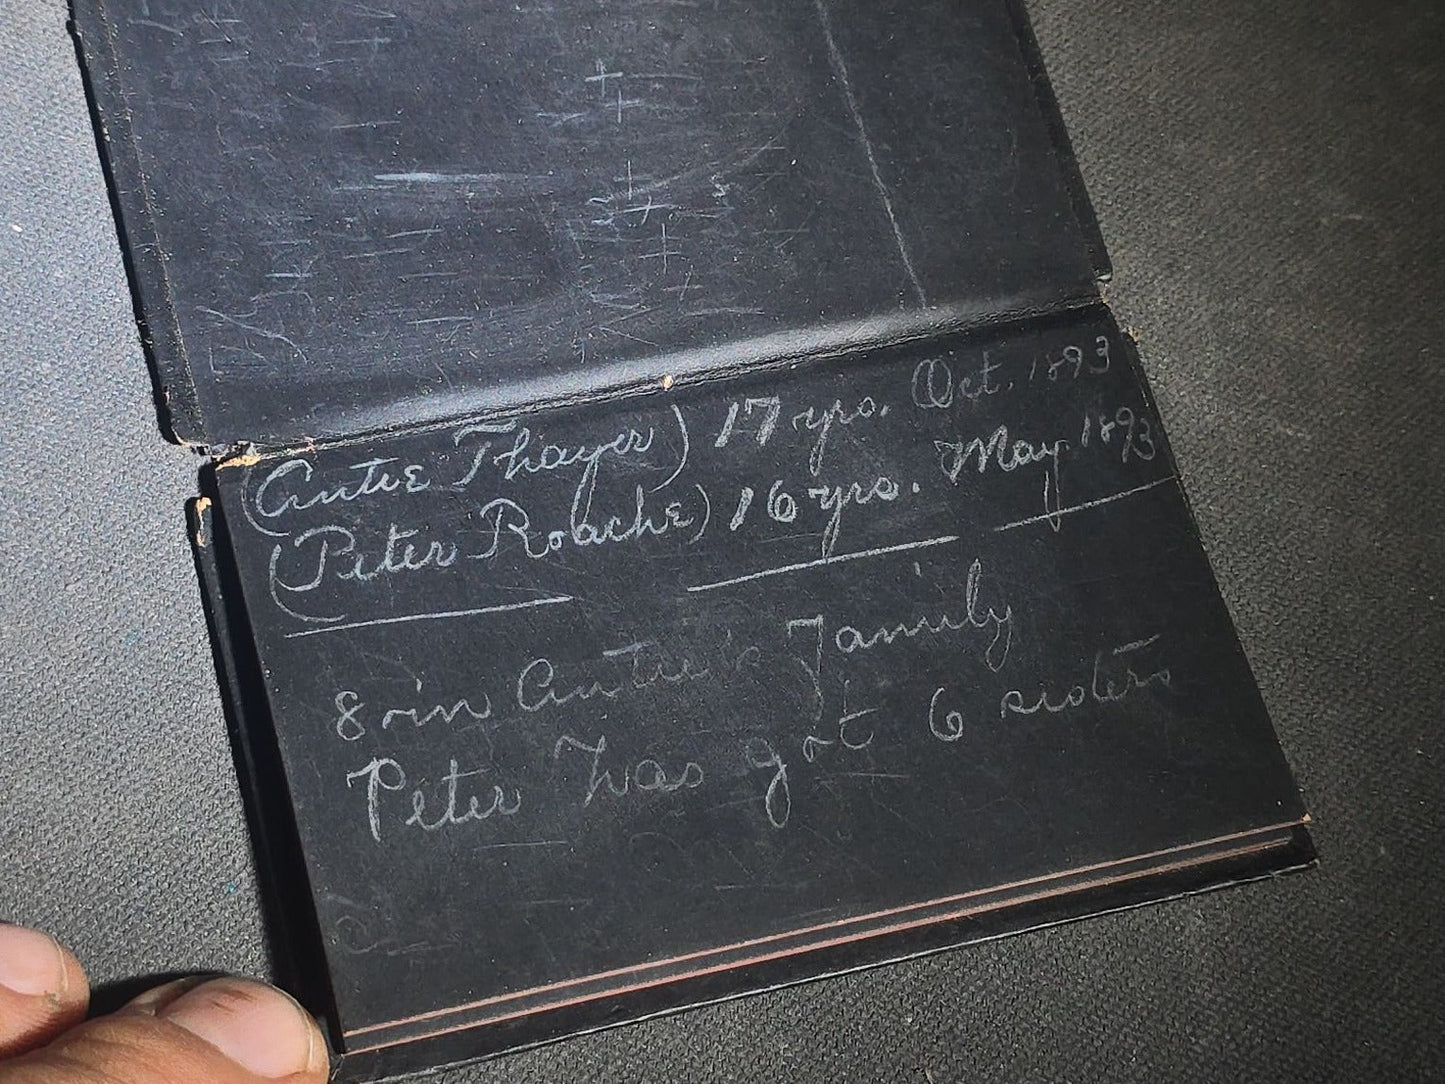 (Autie Thayer) 17 yrs. Oct. 1893
(Peter Roache) 16 yrs. May 1893
8 in Autie's Family
Peter has got 6 sisters